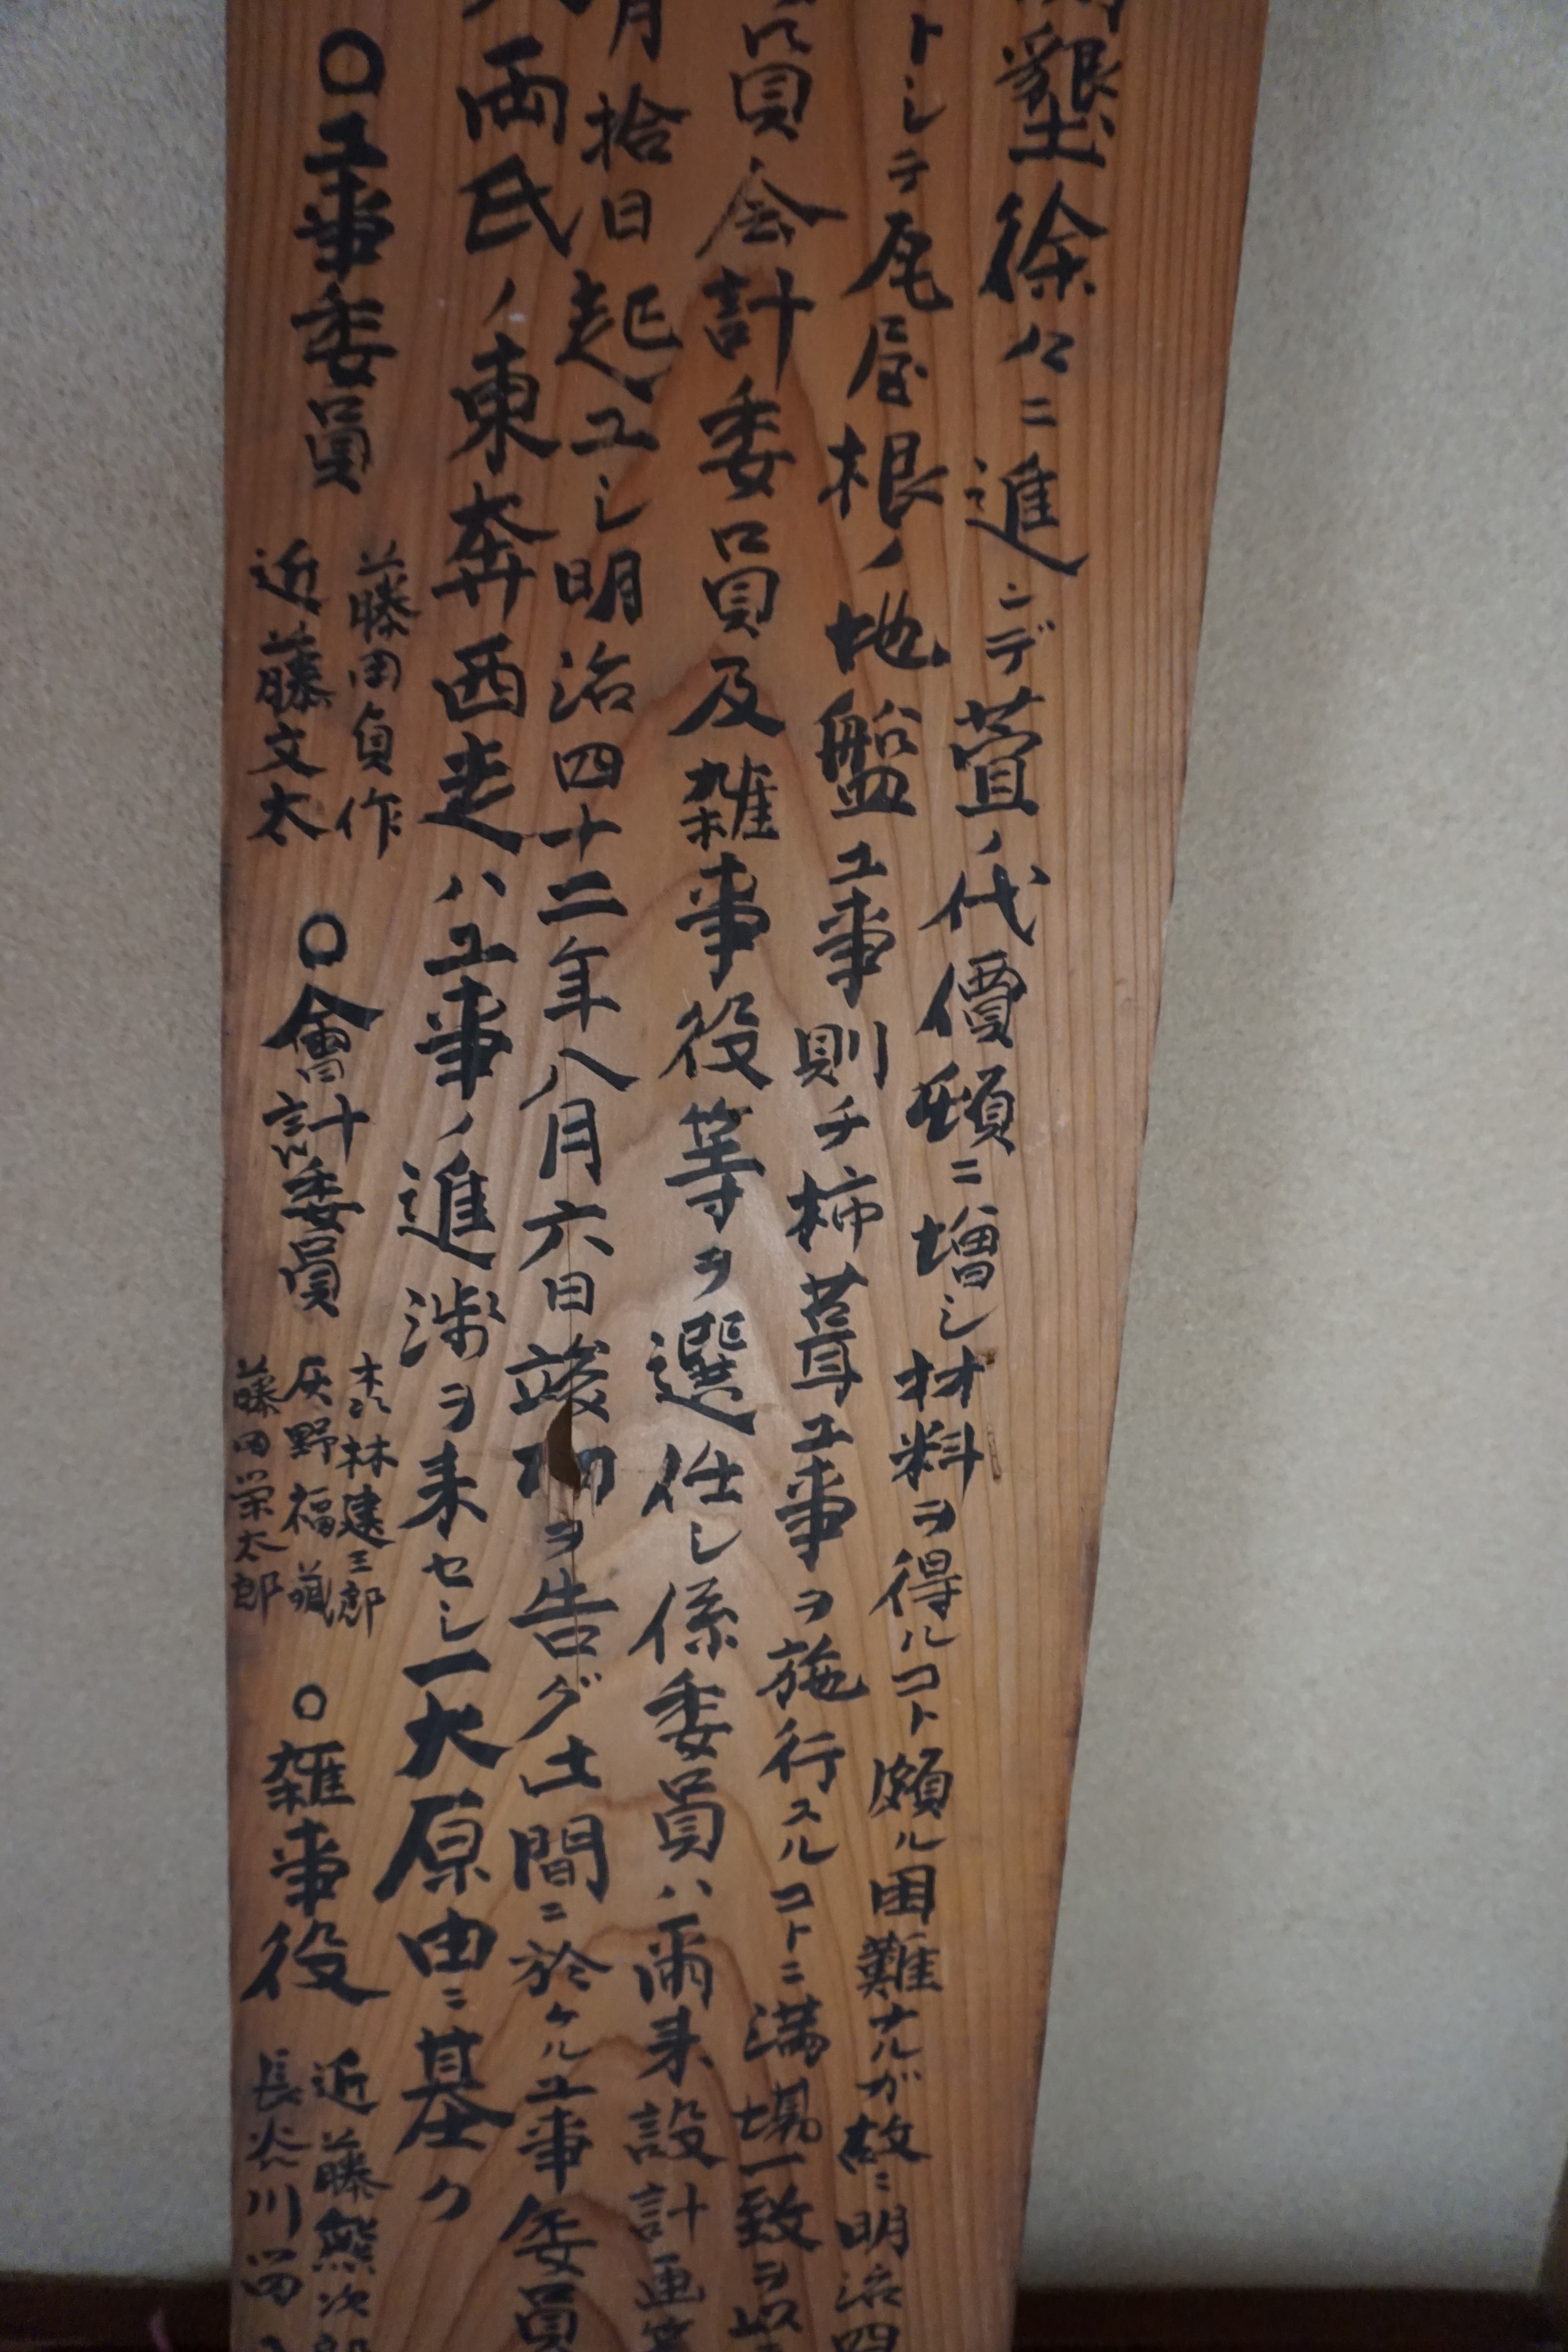 墾徐々ニ進ンデ萱ノ代價頓ニ増シ材料ヲ得ルコト頗ル困難ナルガ故ニ明治四
トシテ瓦屋根ノ地盤工事則チ柿葺工事ヲ施行スルコトニ満場一致ヲ以
員会計委員及雑事役等ヲ選任シ係委員ハ爾来設計画
月拾日起工シ明治四十二年八月六日竣功ヲ告グ土間ニ於ケル工事委員
両氏ノ東奔西走ハ工事ノ進渉ヲ来セシ一大原由ニ基ク
〇工事委員
藤田貞作
近藤文太
〇會計委員
林建三郎
灰野福蔵
藤田栄太郎
〇雑事役
近藤熊次郎
長谷川